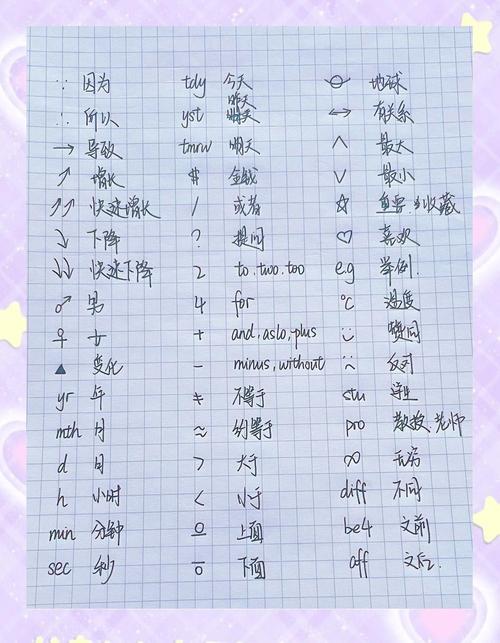 ∵ 因为 tdy 今天 地球
∴ 所以 yst 昨天 ↔ 有关系
→ 导致 tmrw 明天 ∧ 最大
↗ 增长 $ 金钱 ∨ 最小
↗↗ 快速增长 / 或者 ☆ 重要、收藏
↘ 下降 ? 提问 ♡ 喜欢
↓↓ 快速下降 2 to.two.too e.g 举例.
♂ 男 4 for ℃ 温度
♀ 女 + and.aslo.plus 赞同
▲ 变化 - minus,without 反对
yr 年 ≠ 不等于 stu 学生
mth 月 ≈ 约等于 pro 教授.老师
d 日 > 大于 ∞ 无穷
h 小时 < 小于 diff 不同
min 分钟 上面 be4 文前
sec 秒 下面 aff 文后.